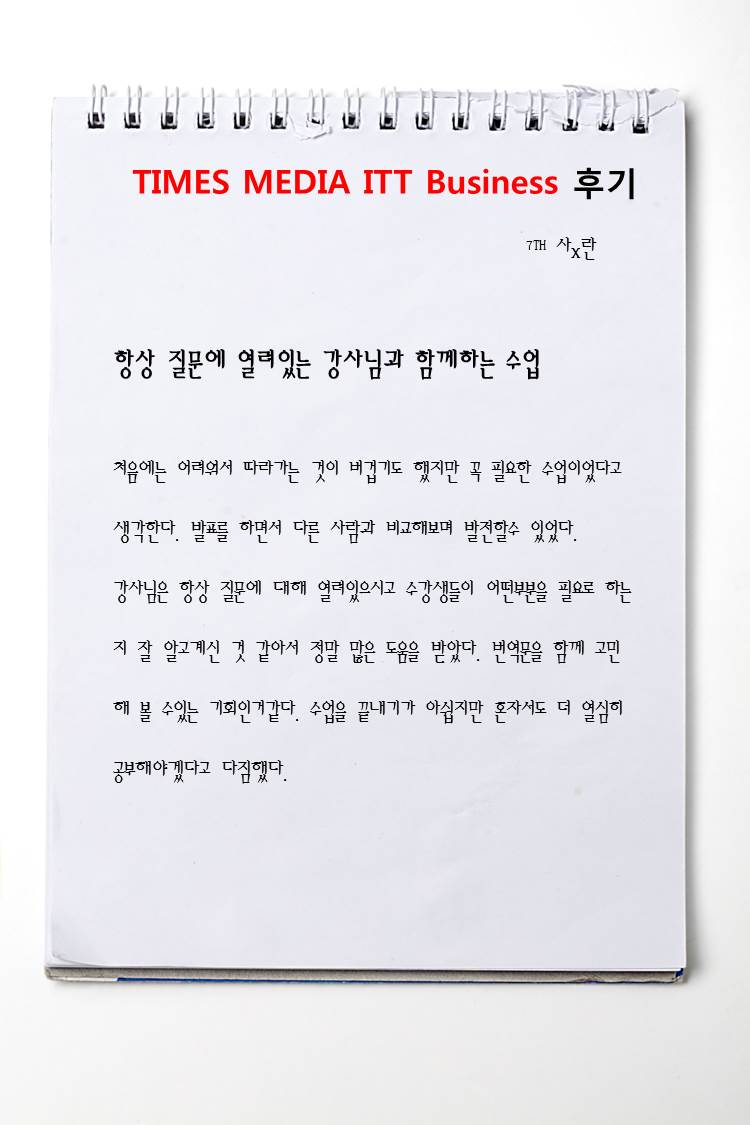 TIMES MEDIA ITT Business 후기
7TH 사x란
항상 질문에 열려있는 강사님과 함께하는 수업
처음에는 어려워서 따라가는 것이 버겁기도 했지만 꼭 필요한 수업이었다고
생각한다. 발표를 하면서 다른 사람과 비교해보며 발전할수 있었다.
강사님은 항상 질문에 대해 열려있으시고 수강생들이 어떤부분을 필요로 하는
지 잘 알고계신 것 같아서 정말 많은 도움을 받았다. 번역문을 함께 고민
해 볼 수있는 기회인거같다. 수업을 끝내기가 아쉽지만 혼자서도 더 열심히
공부해야겠다고 다짐했다.